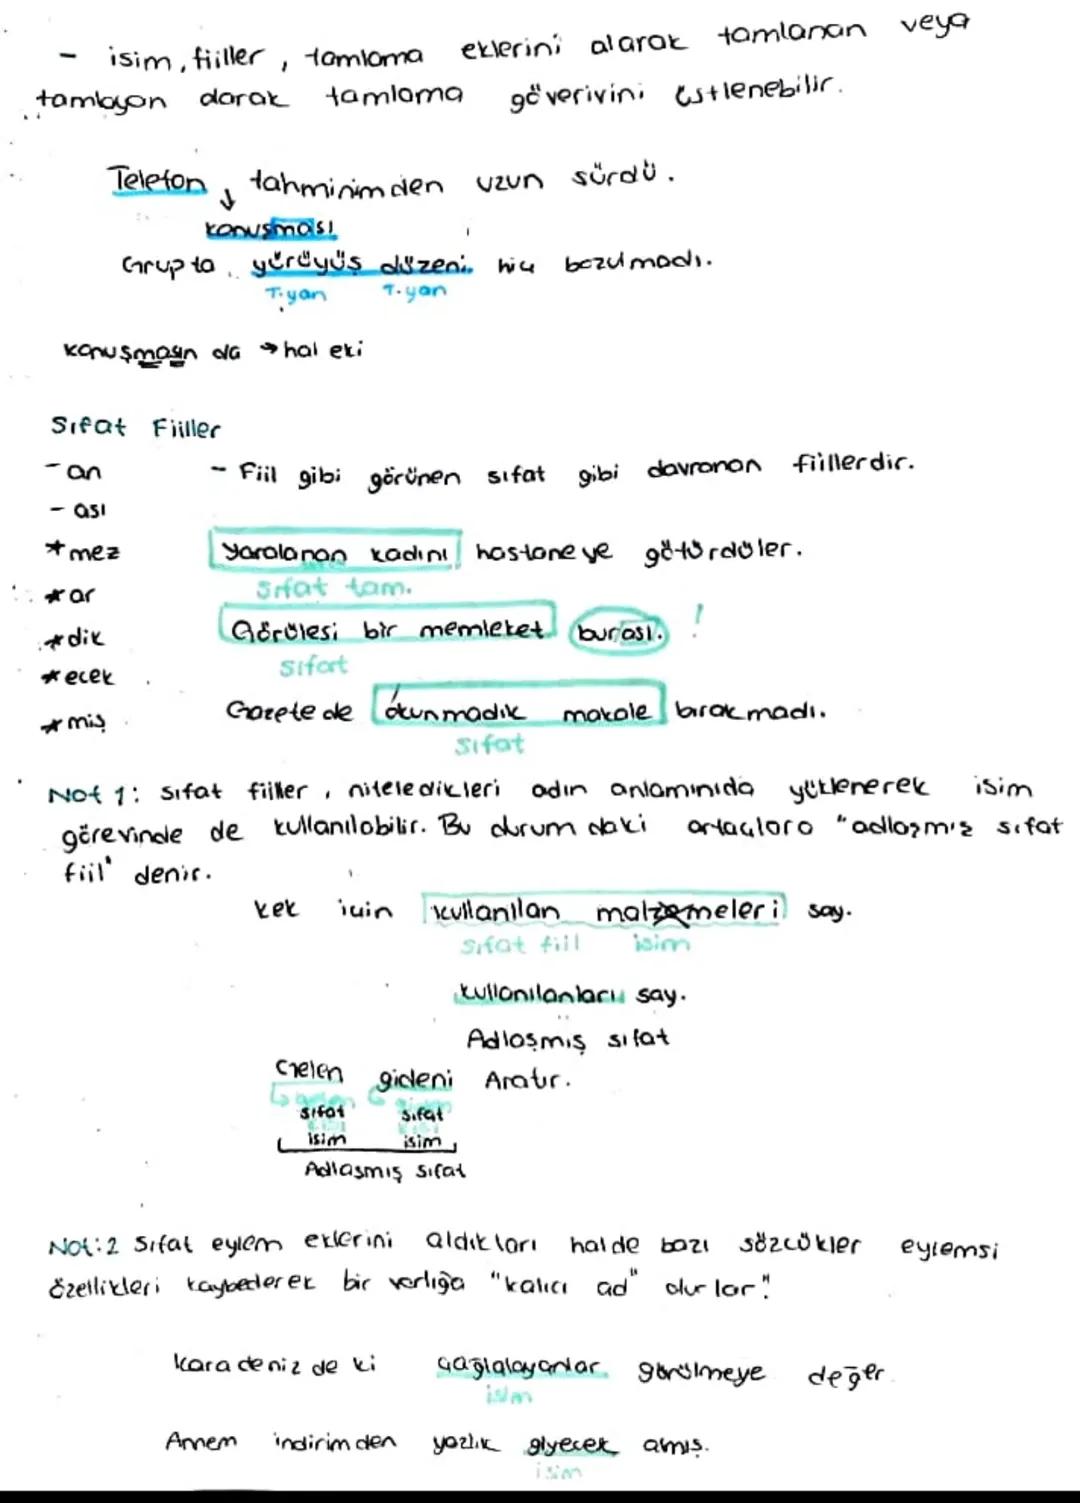 - isim, fiiller, tamlama eklerini alarak tamlanan veya
tamlayan olarak tamlama göverivini üstlenebilir.
Telefon ↓ tahminimden uzun sürdü.
konuşması
Grupta yürüyüş düzeni hiç bozulmadı.
T.yan T.yan
konuşmasın da → hal eki
Sıfat Fiiller
-an - Fiil gibi görünen sıfat gibi davranan fiillerdir.
- ası
*mez Yaralanan kadını hastaneye götürdüler.
*ar Sıfat tam.
*dik Görülesi bir memleket burası. !
*ecek Sıfat
*miş Gazetede okunmadık makale bırakmadı.
Sıfat
Not 1: sıfat fiiller, niteledikleri adın anlamınıda yüklenerek isim
görevinde de kullanılabilir. Bu durumdaki ortaçlara "adlaşmış sıfat
fiil" denir.
kek için kullanılan malzemeleri say.
Sıfat fiil isim
kullanılanları say.
Adlaşmış sıfat
Gelen gideni Aratır.
sıfat sıfat
isim isim
Adlaşmış sıfat
Not:2 Sıfat eylem eklerini aldıkları halde bazı sözcükler eylemsi
özellikleri kaybederek bir varlığa "kalıcı ad" olurlar."
karadeniz de ki çağlalayanlar görülmeye değer.
isim
Annem indirimden yazlık giyecek almış.
isim